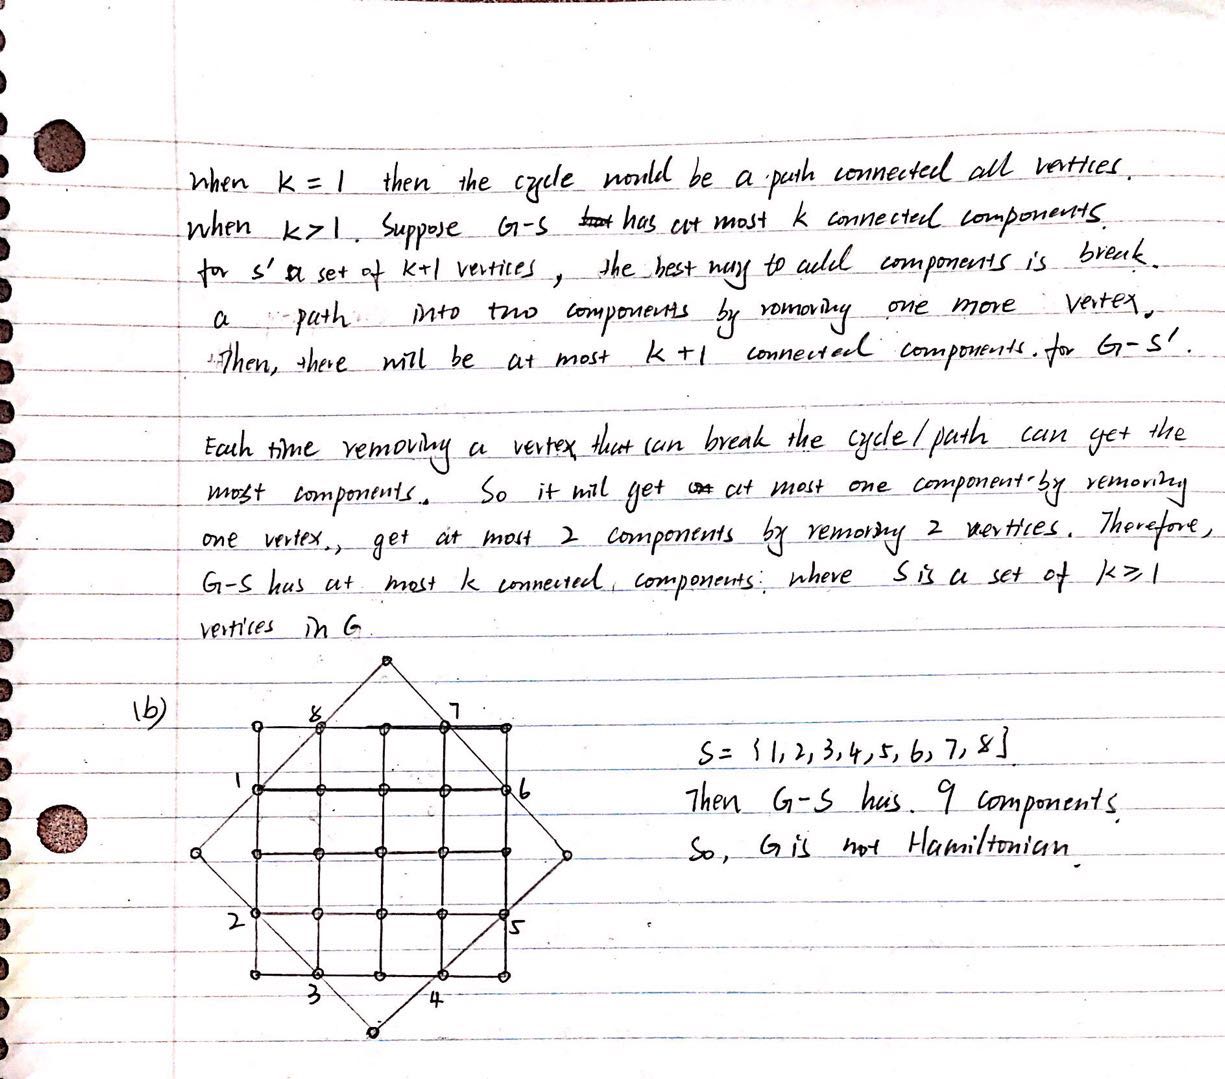 when k = 1 then the cycle would be a path connected all vertices.
when k>1. Suppose G-S has at most k connected components.
for s' a set of k+1 vertices, the best way to add components is break
a path into two components by removing one more vertex.
Then, there will be at most k+1 connected components. for G-S'.
Each time removing a vertex that can break the cycle/path can get the
most components. So it will get at most one component by removing
one vertex., get at most 2 components by removing 2 vertices. Therefore,
G-S has at most k connected components. where S is a set of k≥1
vertices in G.
(b)
8 7
1 6
2 5
3 4
S = {1,2,3,4,5,6,7,8}
Then G-S has 9 components.
So, G is not Hamiltonian.